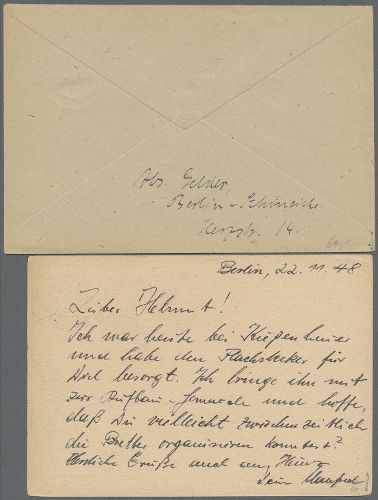 Abs. Gelder,
Berlin-Schöneiche
14.
Berlin, 22.11.48
Lieber Helmut!
Ich war heute bei Kiepenheuer
und habe den Flachstecker für
Dich besorgt. Ich bringe ihn mit
zur Aufbau- und hoffe,
daß Du vielleicht zwischenzeitlich
die Bretter organisieren konntest?
Herzliche Grüße auch an
Dein Manfred